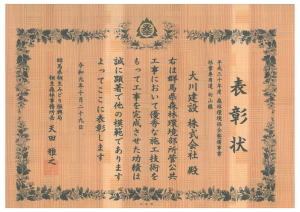 表彰状
平成三十年度 森林環境保全整備事業
大川建設 株式会社 殿
右は群馬県森林環境部所管公共
工事において優秀な施工技術を
もって工事を完成させた功績は
誠に顕著で他の模範であります
よってここに表彰します
令和元年十月二十九日
群馬県桐生みどり振興局
桐生森林事務所長 天田 雅之